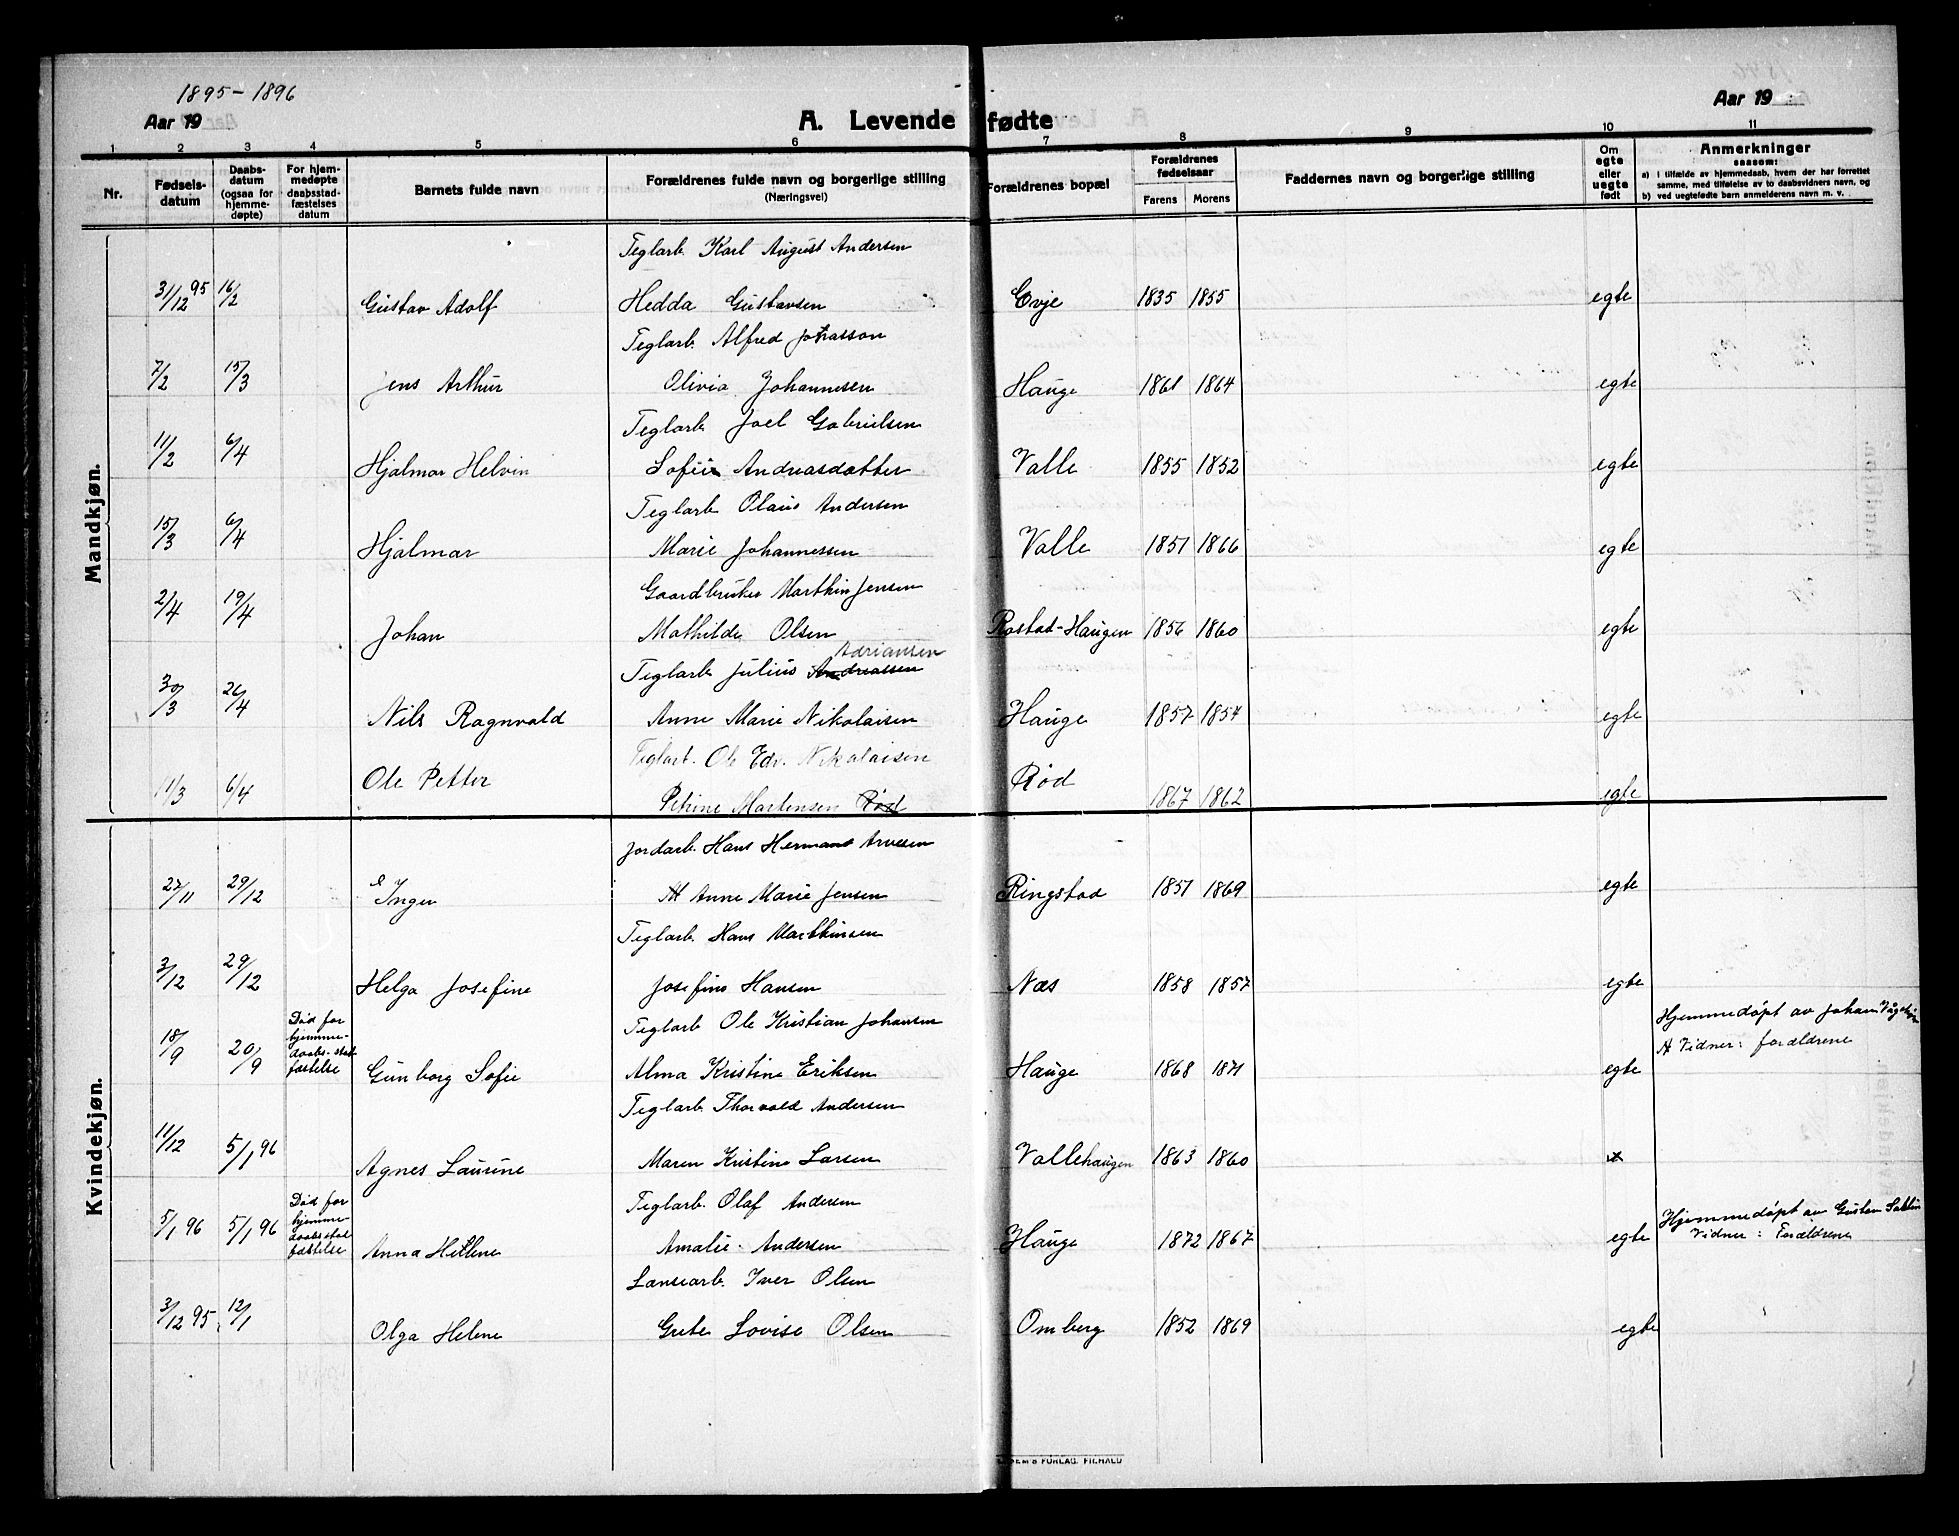 1895-1896
Aar 19
A. Levende fødte
Aar 19
1 2 3 4 5 6 7 8 9 10 11
Nr.
Fødsels-datum
Daabs-datum (ogsaa for hjemme-døpte)
For hjem-medøpte daabsstad-fæstelses datum
Barnets fulde navn
Forældrenes fulde navn og borgerlige stilling (Næringsvei)
Forældrenes bopæl
Forældrenes fødselsaar
Farens Morens
Faddernes navn og borgerlige stilling
Om egte eller uegte født
Anmerkninger
saasom:
a) i tilfælde av hjemmedaab, hvem der har forrettet samme, med tilføielse av to daabsvidners navn, og
b) ved uegtefødte barn anmelderens navn m. v.
Mandkjøn.
Teglarb. Karl August Andersen
31/12 95 16/2 Gustav Adolf Hedda Gustavsen Evje 1835 1855 egte
Teglarb. Alfred Johasson
7/2 15/3 Jens Arthur Olivia Johannesen Hauge 1861 1864 egte
Teglarb. Joel Gabrielsen
11/2 6/4 Hjalmar Helvin Sofie Andreasdatter Valle 1855 1852 egte
Teglarb Olaus Andersen
15/3 6/4 Hjalmar Marie Johannessen Valle 1851 1866 egte
Gaardbruker Marthin Jensen
2/4 19/4 Johan Mathilde Olsen Rostad-Haugen 1856 1860 egte
Adriansen
Teglarb. Julius Andreassen
30/3 26/4 Nils Ragnvald Anne Marie Nikolaisen Hauge 1857 1854 egte
Teglarb. Ole Edv. Nikolaisen
11/3 6/4 Ole Petter Petrine Martensen Rød Rød 1867 1862 egte
Kvindekjøn.
Jordarb. Hans Herman Arvesen
27/11 29/12 Inger Anne Marie Jensen Ringstad 1851 1869 egte
Teglarb. Hans Marthinsen
3/12 29/12 Helga Josefine Josefine Hansen Næs 1858 1857 egte
Teglarb Ole Kristian Johansen
18/9 20/9 Død før hjemme-daabs-stad fæstelse Gunborg Sofie Alma Kristine Eriksen Hauge 1868 1871 egte Hjemmedøpt av Johan
Vidner: forældrene
Teglarb. Thorvald Andersen
11/12 5/1 96 Agnes Laurine Maren Kristine Larsen Vallehaugen 1863 1860
Teglarb. Olaf Andersen
5/1 96 5/1 96 Død før hjemme daabsstad fæstelse Anna Helene Amalie Andersen Hauge 1872 1867 egte Hjemmedøpt av Gustav
Vidner: Forældrene
Landarb. Iver Olsen
3/12 95 12/1 Olga Helene Grete Lovise Olsen Omberg 1852 1869 egte
FORLAG, F.HALD